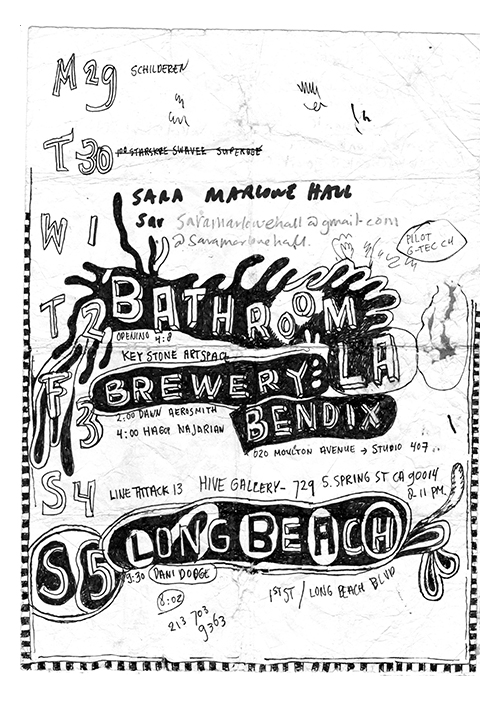 M 29 SCHILDEREN
T 30
SARA MARLOWE HALL
Sar saramarlowehall@gmail.com
W 1 @saramarlowehall.
PILOT
G-TEC C4
T 2 BATHROOM
OPENING 4:8
LA
KEYSTONE ARTSPACE
F 3 BREWERY:
2:00 DAWN AEROSMITH
BENDIX
4:00 HAGOP NAJARIAN
1020 MOULTON AVENUE → STUDIO 407
S 4 LINE ATTACK 13 HIVE GALLERY - 729 S. SPRING ST CA 90014
8-11 PM
S 5 LONG BEACH
9:30 DANI DODGE
1ST ST / LONG BEACH BLVD
8:02
213 703
9363